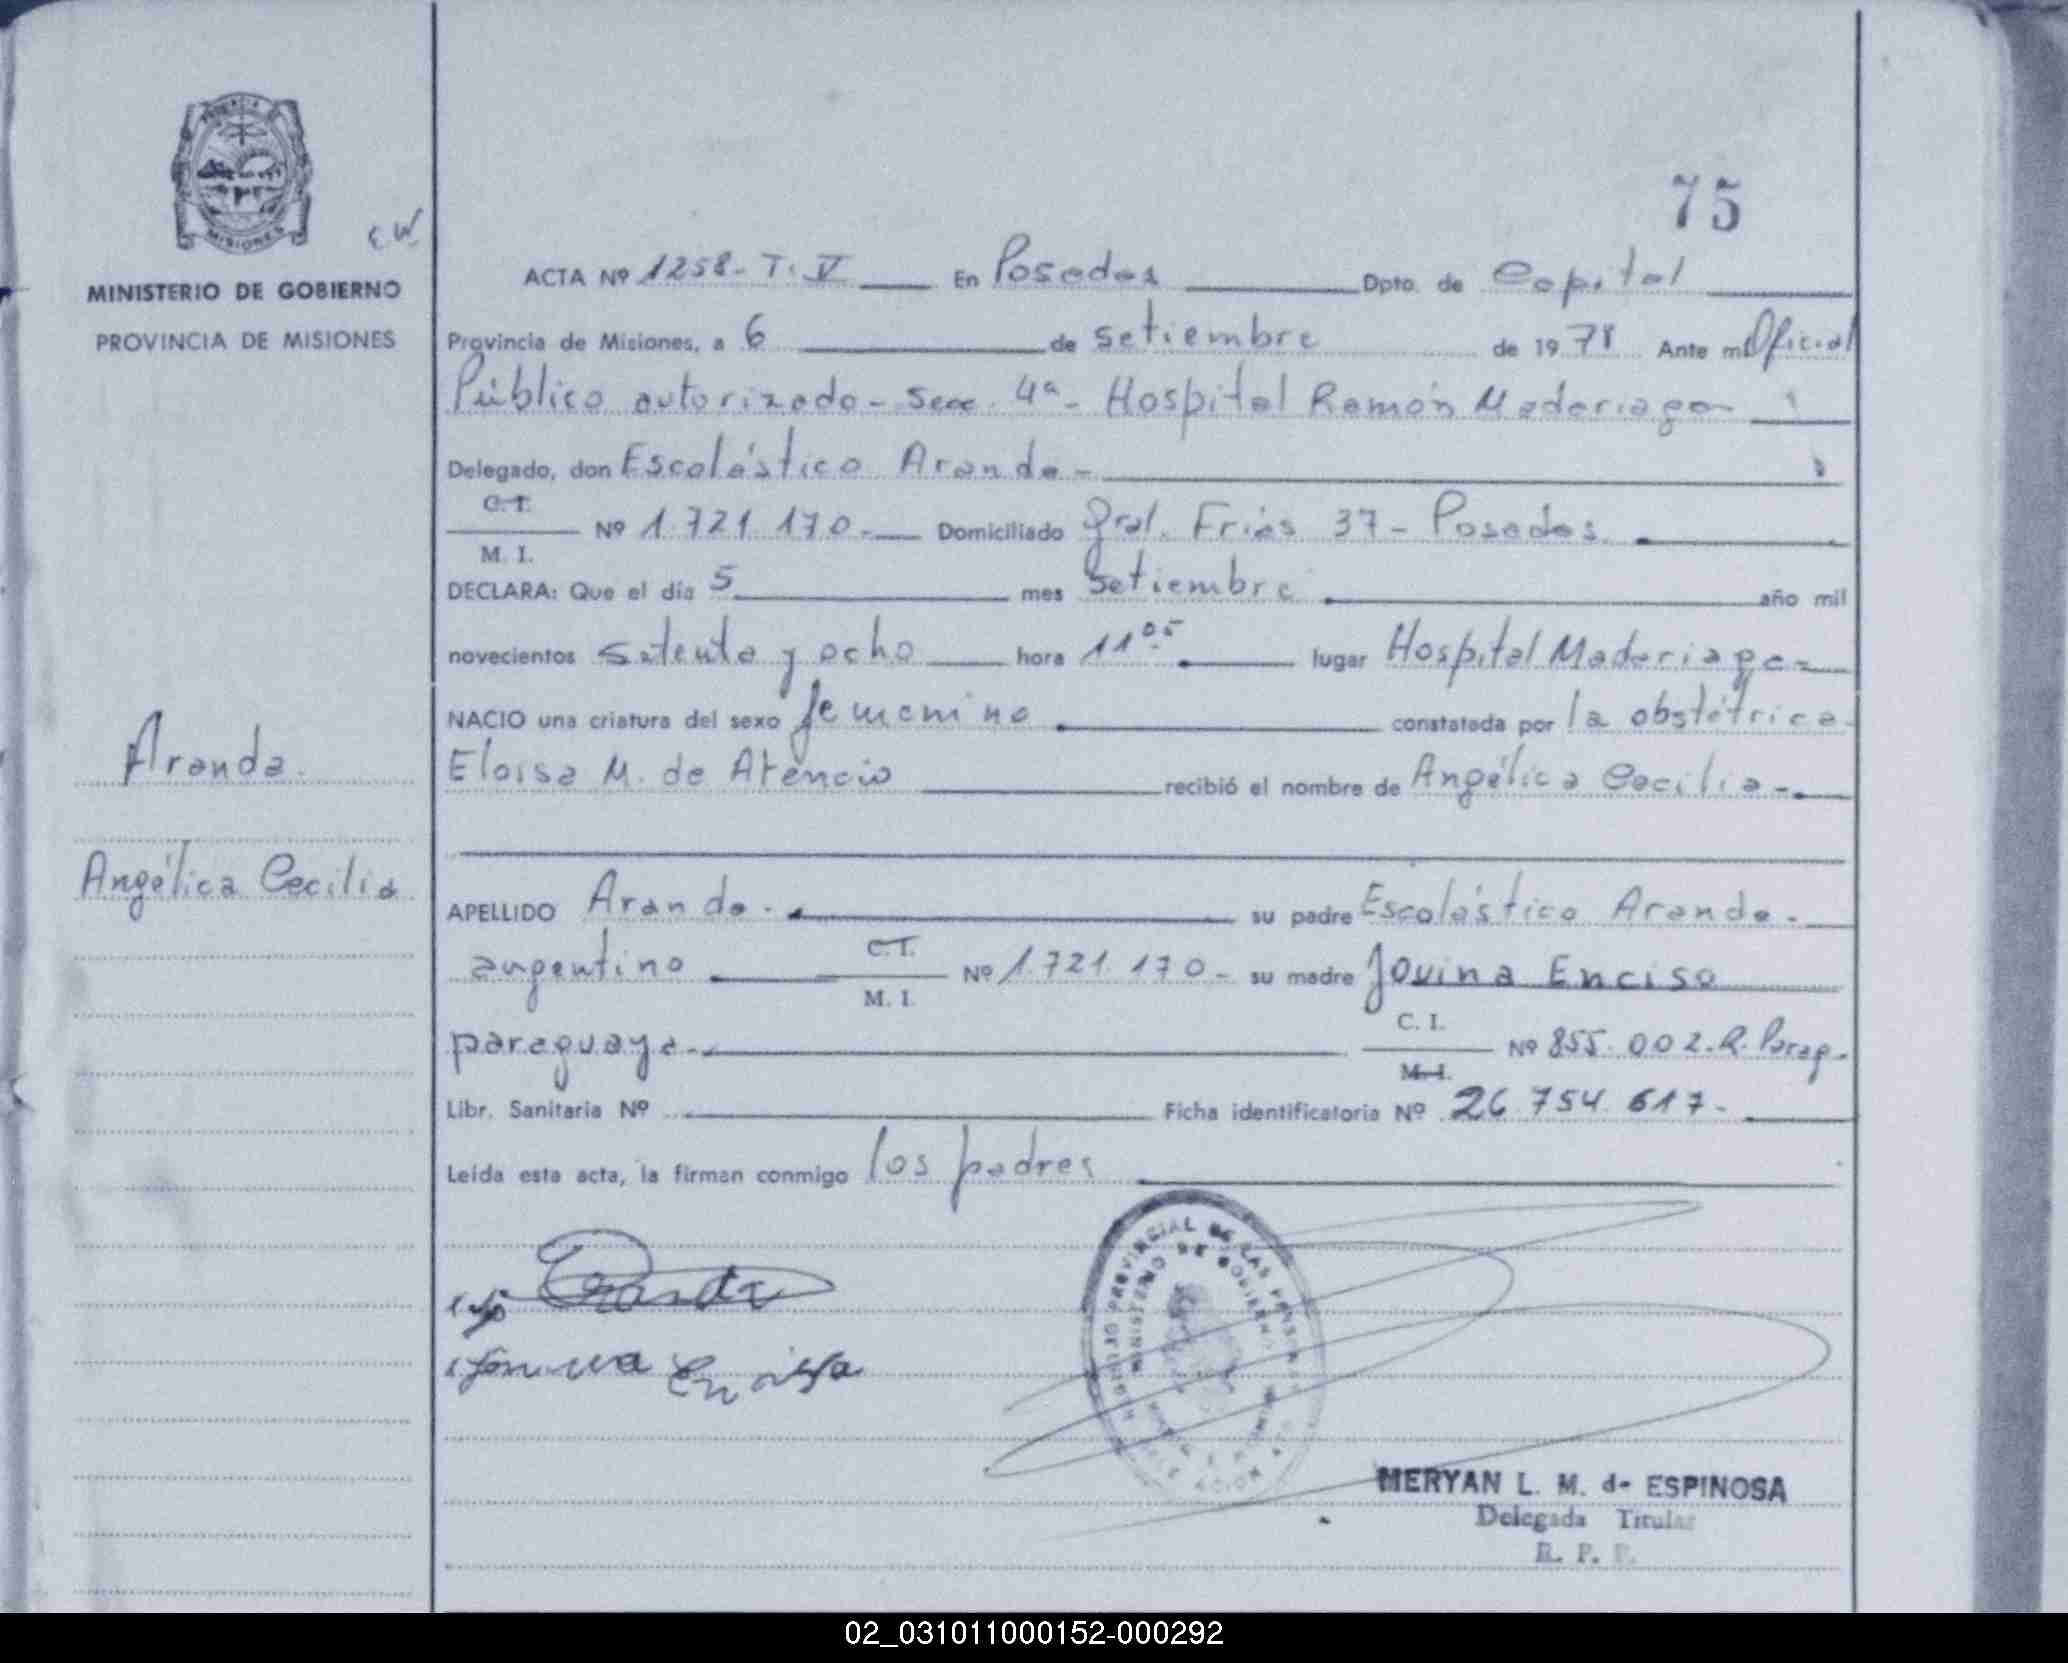 75
PROVINCIA
MISIONES
MINISTERIO DE GOBIERNO
PROVINCIA DE MISIONES
ACTA Nº 1258- T. V En Posadas Dpto. de Capital
Provincia de Misiones, a 6 de setiembre de 1978 Ante mi Oficial
Público autorizado - Secc. 4ª - Hospital Ramón Madariaga
Delegado, don Escolástico Aranda -
C. I.
M. I. Nº 1.721.170.- Domiciliado Gral. Frías 37 - Posadas.
DECLARA: Que el día 5 mes Setiembre año mil
novecientos setenta y ocho hora 11 05 lugar Hospital Madariaga -
NACIO una criatura del sexo femenino constatada por la obstétrica
Eloisa M. de Atencio recibió el nombre de Angélica Cecilia -
Aranda.
Angélica Cecilia
APELLIDO Aranda. su padre Escolástico Aranda.
argentino C. I.
M. I. Nº 1.721.170.- su madre Jovina Enciso
paraguaya C. I.
M. I. Nº 855.002.R. Parag.
Libr. Sanitaria Nº Ficha identificatoria Nº 26.754.617-
Leída esta acta, la firman conmigo los padres
Aranda
Enciso
MERYAN L. M. de ESPINOSA
Delegada Titular
R. P. P.
02_031011000152-000292